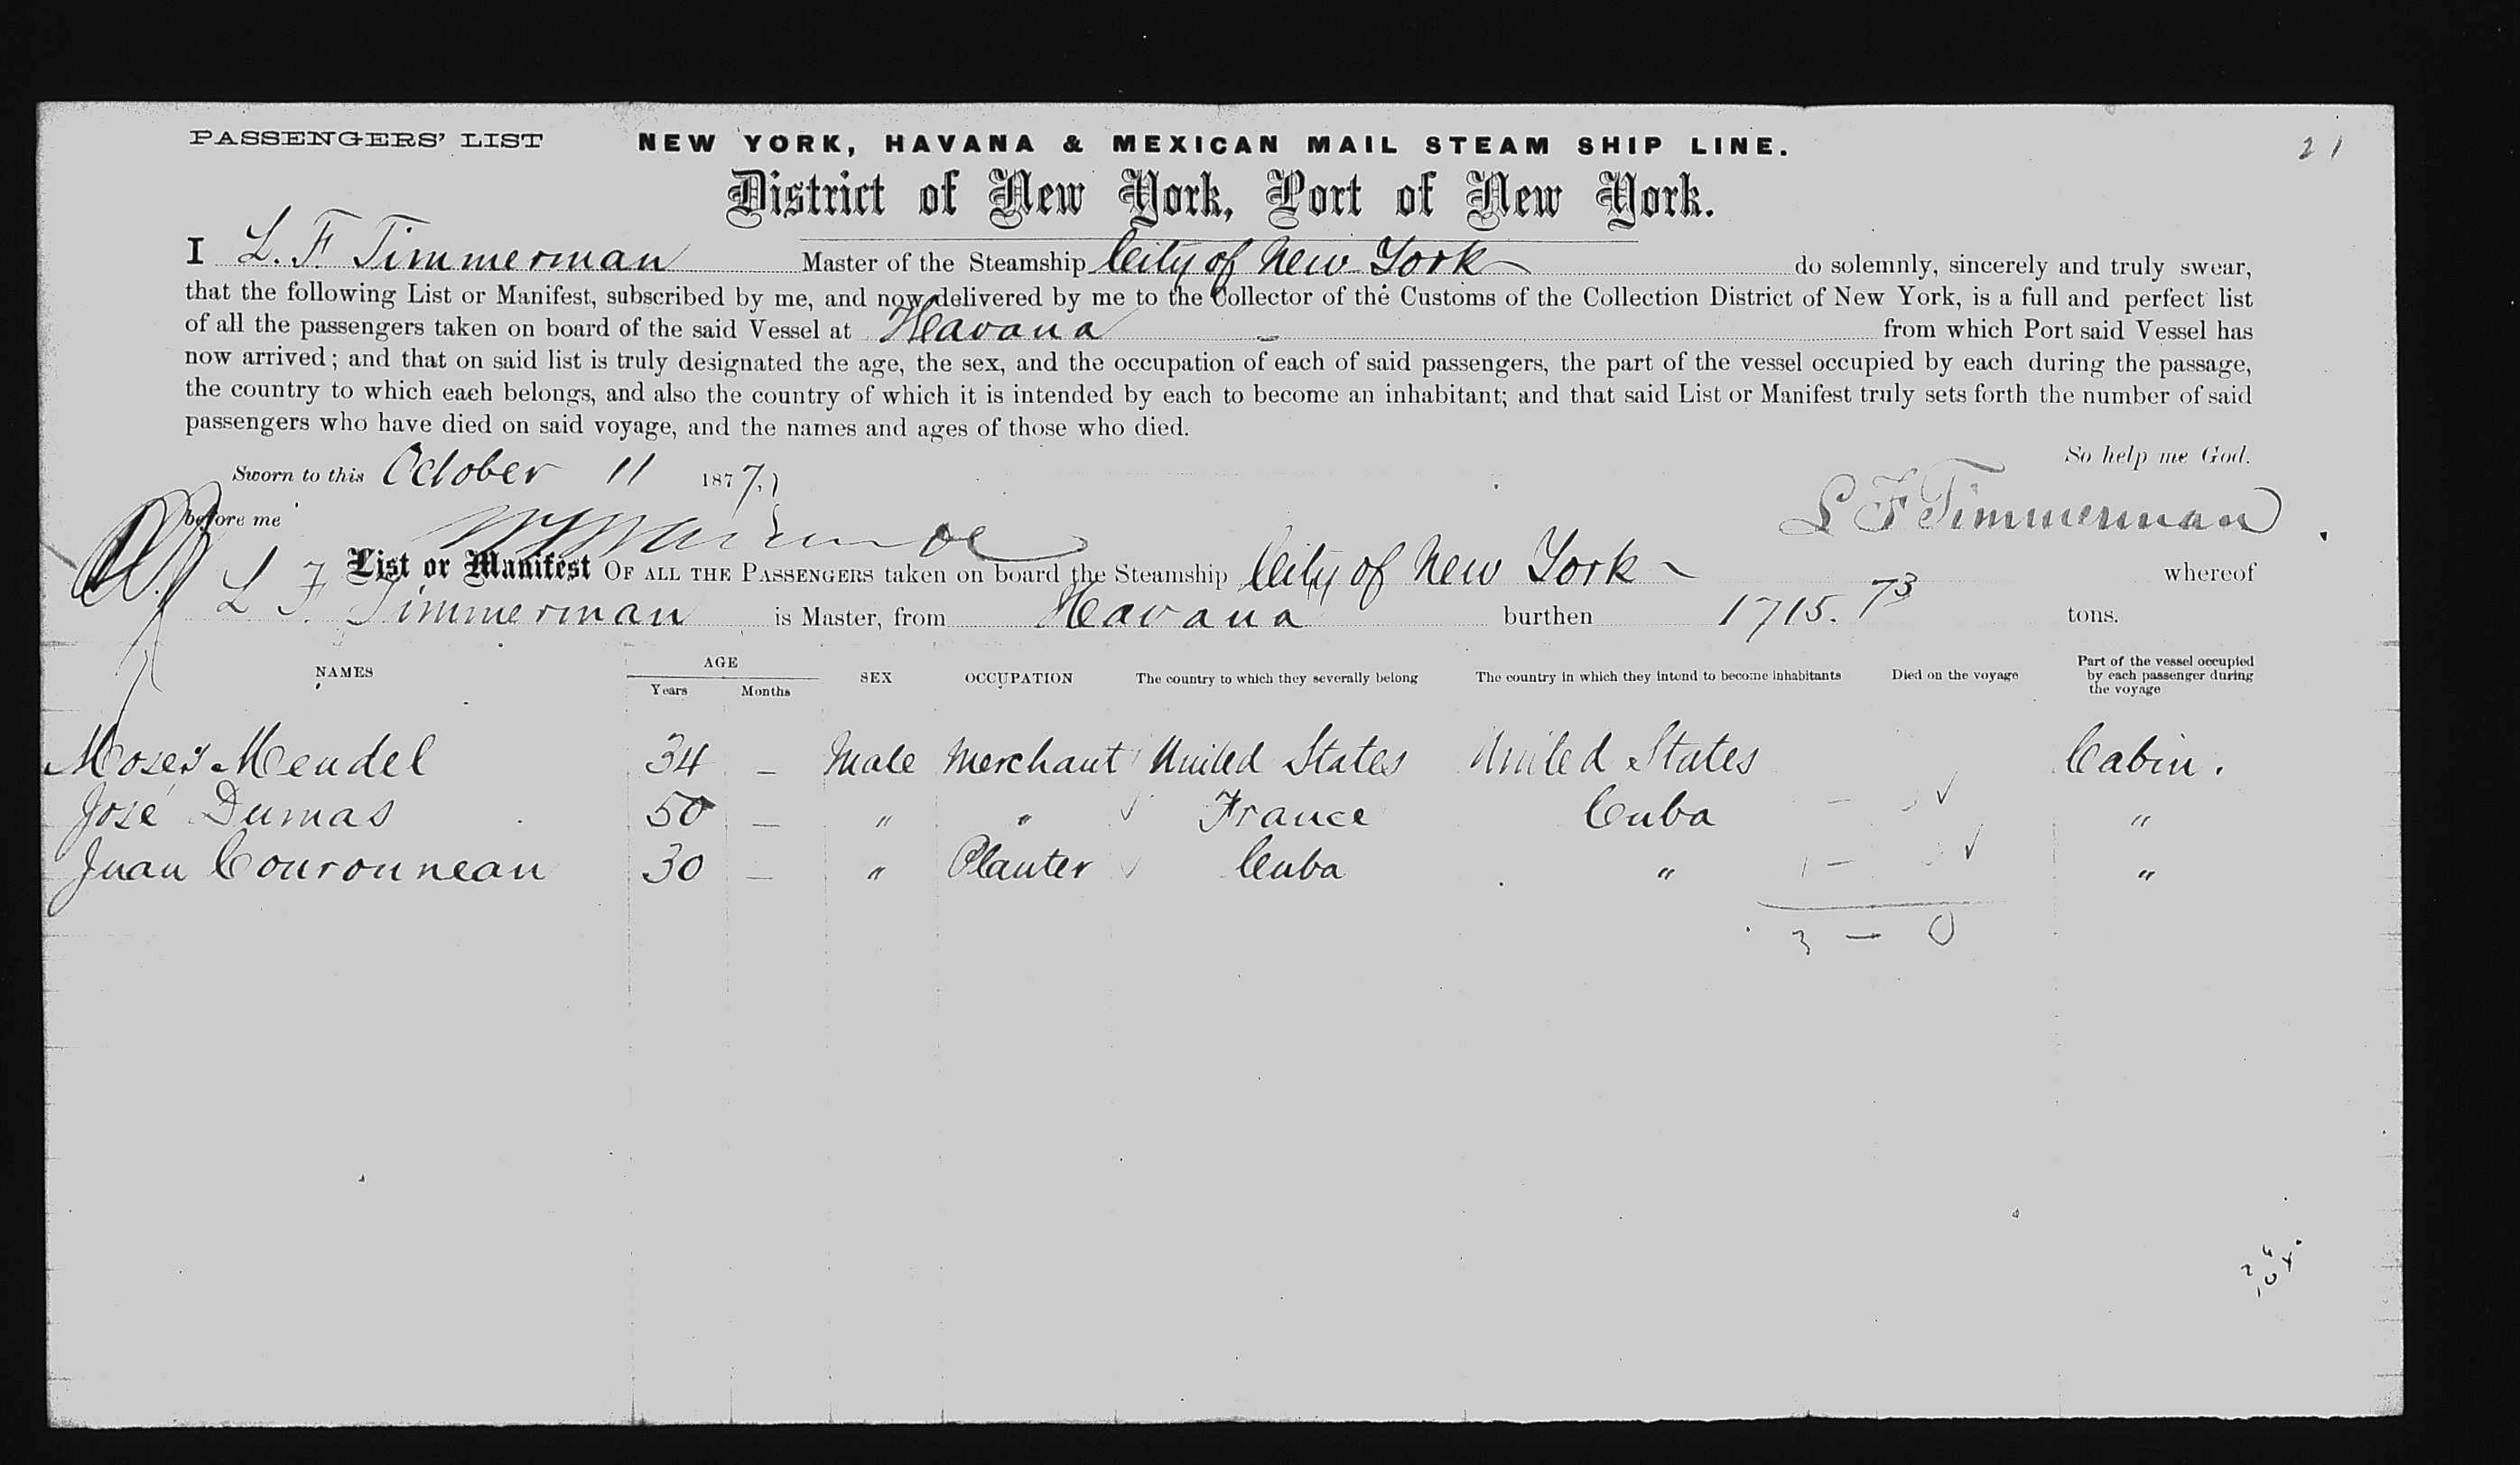 PASSENGERS' LIST NEW YORK, HAVANA & MEXICAN MAIL STEAM SHIP LINE. 21
District of New York, Port of New York.
I L. F. Timmerman Master of the Steamship City of New York do solemnly, sincerely and truly swear,
that the following List or Manifest, subscribed by me, and now delivered by me to the Collector of the Customs of the Collection District of New York, is a full and perfect list
of all the passengers taken on board of the said Vessel at Havana from which Port said Vessel has
now arrived; and that on said list is truly designated the age, the sex, and the occupation of each of said passengers, the part of the vessel occupied by each during the passage,
the country to which each belongs, and also the country of which it is intended by each to become an inhabitant; and that said List or Manifest truly sets forth the number of said
passengers who have died on said voyage, and the names and ages of those who died.
So help me God.
Sworn to this October 11 1877
before me L F Timmerman
List or Manifest OF ALL THE PASSENGERS taken on board the Steamship City of New York whereof
L F Timmerman is Master, from Havana burthen 1715.73 tons.
NAMES AGE Years Months SEX OCCUPATION The country to which they severally belong The country in which they intend to become inhabitants Died on the voyage Part of the vessel occupied by each passenger during the voyage
Moses Mendel 34 — Male Merchant United States United States Cabin.
José Dumas 50 — " " France Cuba — "
Juan Couronneau 30 — " Planter Cuba " — "
3 — 0